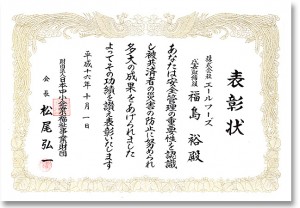 表彰状
株式会社 エールフーズ
代表取締役 福島 裕殿
あなたは安全管理の重要性を認識
し被共済者の災害の防止に努められ
多大の成果をあげられました
よってその功績を讃え表彰いたします
平成十六年十月一日
財団法人日本中小企業福祉事業財団
会長 松尾弘一